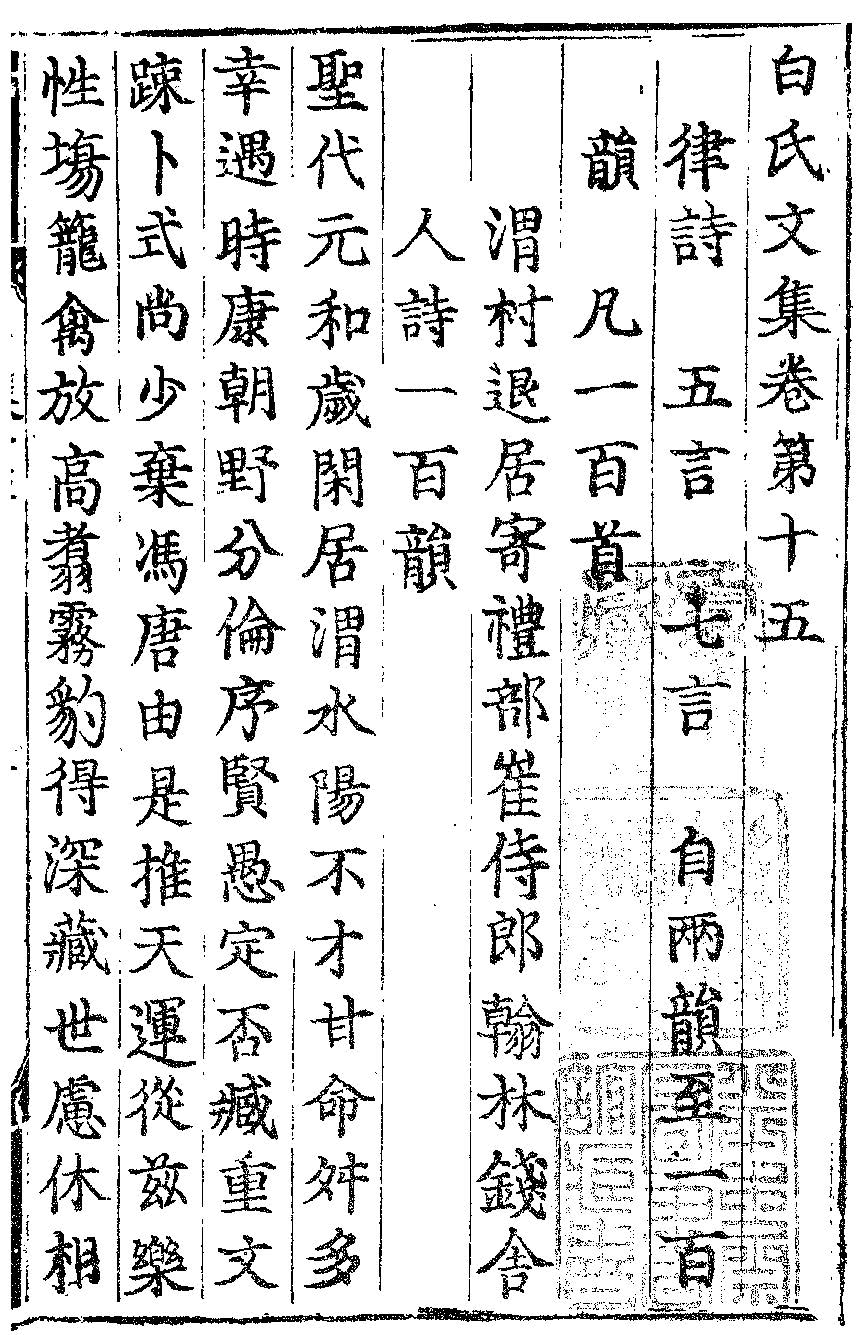 白氏文集卷第十五
律詩　五言　七言　自兩韻至一百
韻　凡一百首
渭村退居寄禮部崔侍郎翰林錢舍
人詩一百韻
聖代元和歲閑居渭水陽不才甘命舛多
幸遇時康朝野分倫序賢愚定否臧重文
踈卜式尚少棄馮唐由是推天運從茲樂
性場籠禽放高翥霧豹得深藏世慮休相